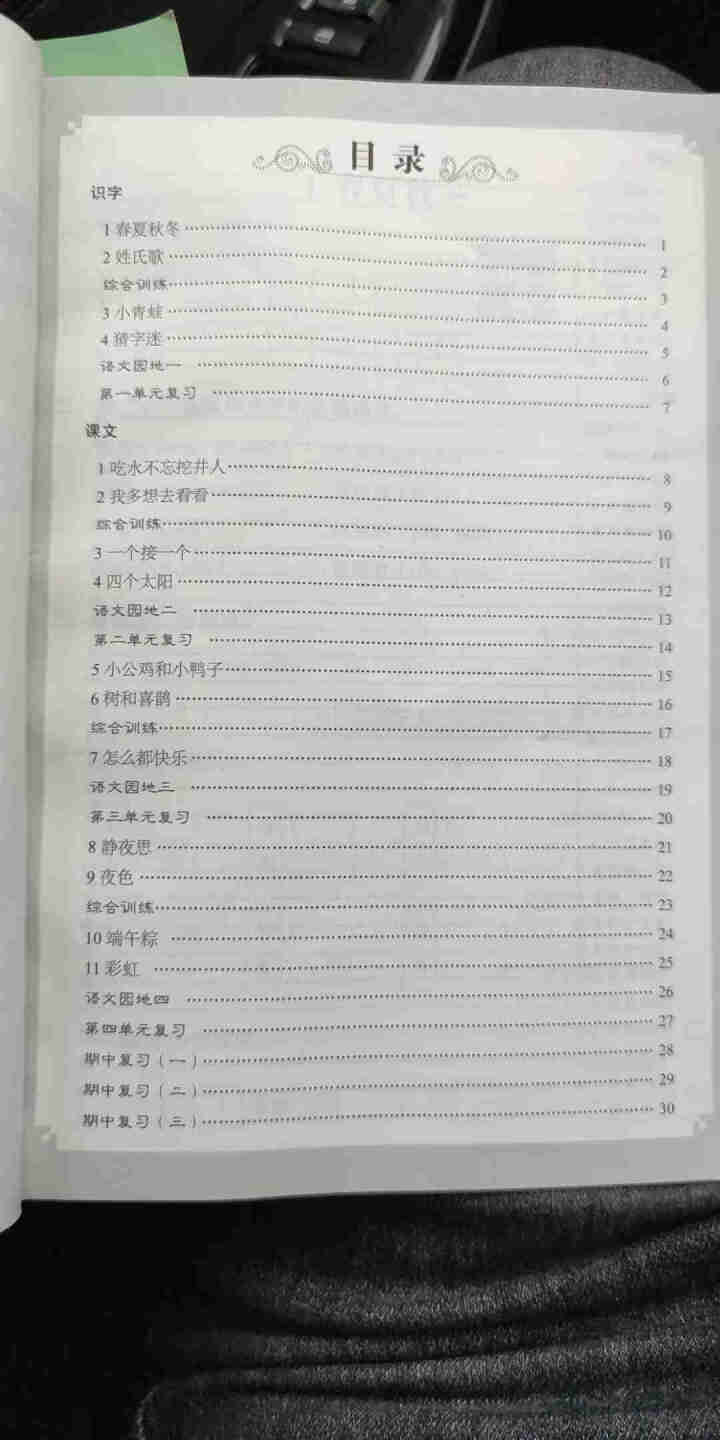 目录
识字
1 春夏秋冬 1
2 姓氏歌 2
综合训练 3
3 小青蛙 4
4 猜字迷 5
语文园地一 6
第一单元复习 7
课文
1 吃水不忘挖井人 8
2 我多想去看看 9
综合训练 10
3 一个接一个 11
4 四个太阳 12
语文园地二 13
第二单元复习 14
5 小公鸡和小鸭子 15
6 树和喜鹊 16
综合训练 17
7 怎么都快乐 18
语文园地三 19
第三单元复习 20
8 静夜思 21
9 夜色 22
综合训练 23
10 端午粽 24
11 彩虹 25
语文园地四 26
第四单元复习 27
期中复习（一） 28
期中复习（二） 29
期中复习（三） 30